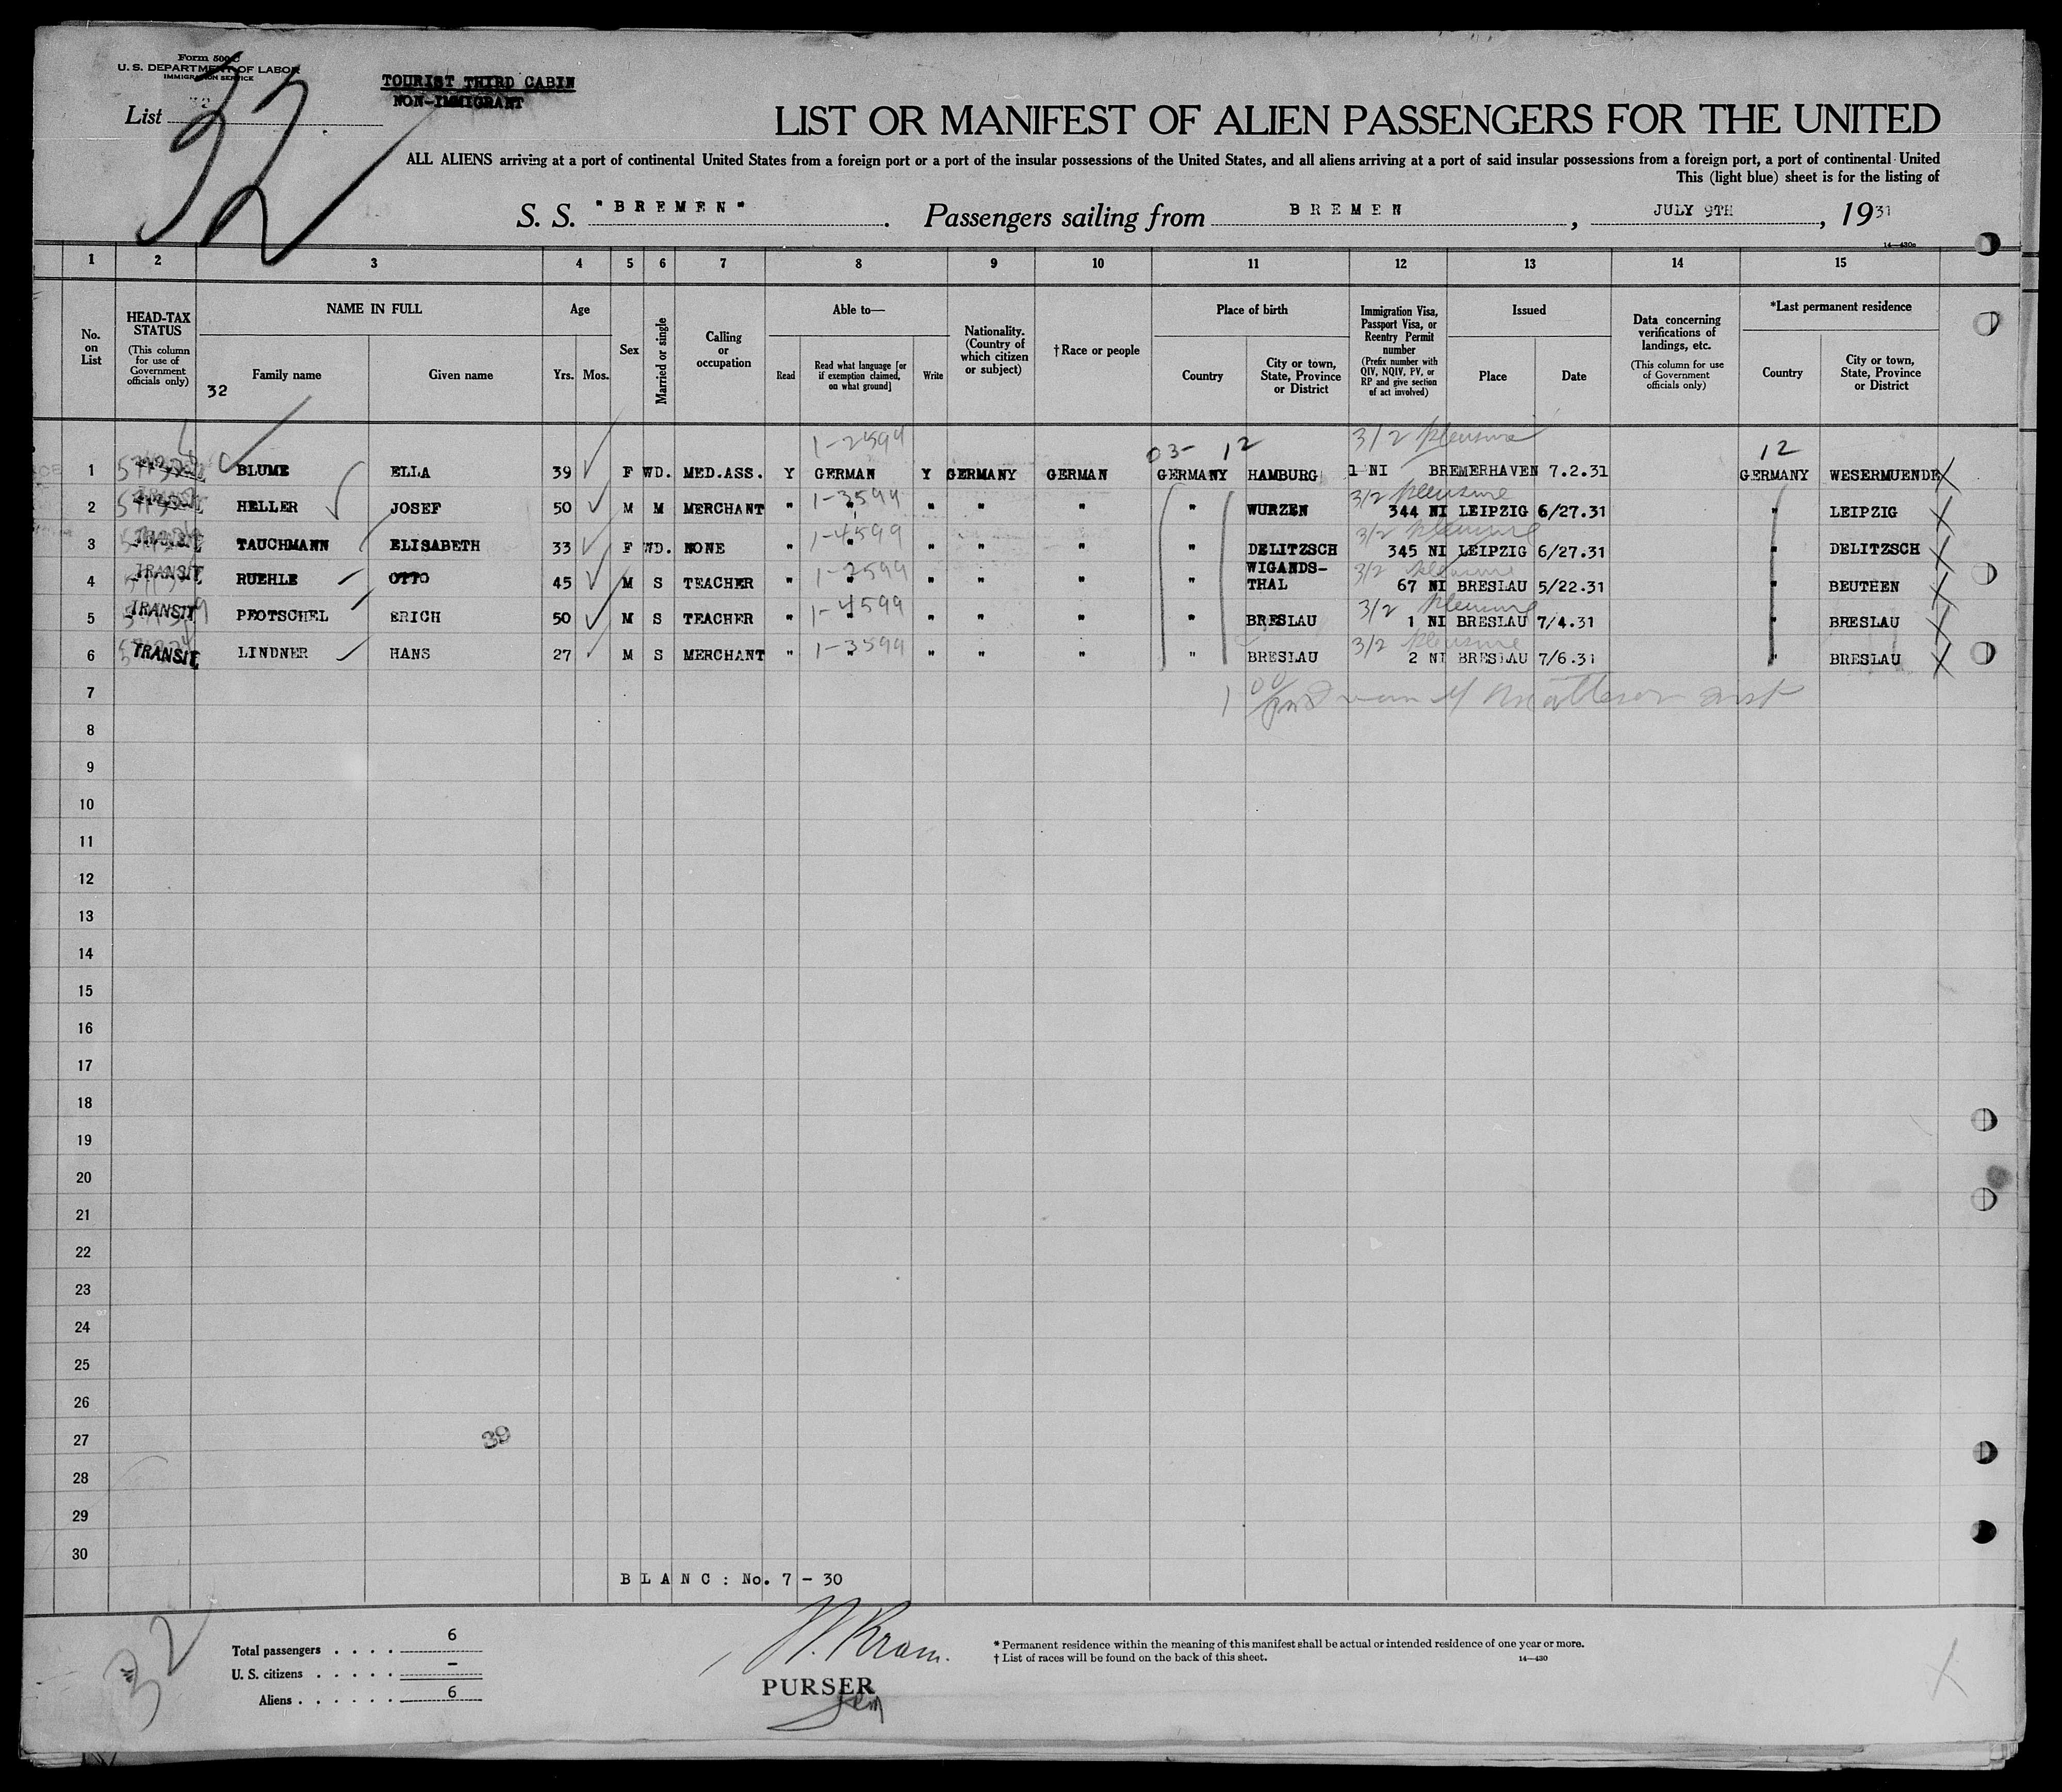 Form 500C
U. S. DEPARTMENT OF LABOR
IMMIGRATION SERVICE
TOURIST THIRD CABIN
NON-IMMIGRANT
List 32
32
LIST OR MANIFEST OF ALIEN PASSENGERS FOR THE UNITED
ALL ALIENS arriving at a port of continental United States from a foreign port or a port of the insular possessions of the United States, and all aliens arriving at a port of said insular possessions from a foreign port, a port of continental United
This (light blue) sheet is for the listing of
S. S. "BREMEN". Passengers sailing from BREMEN, JULY 9TH, 1931
14—430c
1 2 3 4 5 6 7 8 9 10 11 12 13 14 15
No. on List
HEAD-TAX STATUS
(This column for use of Government officials only)
NAME IN FULL
32
Family name
Given name
Age
Yrs. Mos.
Sex
Married or single
Calling or occupation
Able to—
Read
Read what language [or if exemption claimed, on what ground]
Write
Nationality. (Country of which citizen or subject)
†Race or people
Place of birth
Country
City or town, State, Province or District
Immigration Visa, Passport Visa, or Reentry Permit number
(Prefix number with QIV, NQIV, PV, or RP and give section of act involved)
Issued
Place
Date
Data concerning verifications of landings, etc.
(This column for use of Government officials only)
*Last permanent residence
Country
City or town, State, Province or District
1-2594 03- 12 3/2 pleasure 12
1 BLUME ELLA 39 F WD. MED.ASS. Y GERMAN Y GERMANY GERMAN GERMANY HAMBURG 1 NI BREMERHAVEN 7.2.31 GERMANY WESERMUENDE
1-3594 3/2 pleasure
2 HELLER JOSEF 50 M M MERCHANT " " " " " " WURZEN 344 NI LEIPZIG 6/27.31 " LEIPZIG
1-4599 3/2 pleasure
3 TAUCHMANN ELISABETH 33 F WD. NONE " " " " " " DELITZSCH 345 NI LEIPZIG 6/27.31 " DELITZSCH
TRANSIT 1-2599 3/2 pleasure
4 RUEHLE OTTO 45 M S TEACHER " " " " " " WIGANDS-THAL 67 NI BRESLAU 5/22.31 " BEUTHEN
TRANSIT 1-4599 3/2 pleasure
5 PEOTSCHEL ERICH 50 M S TEACHER " " " " " " BRESLAU 1 NI BRESLAU 7/4.31 " BRESLAU
TRANSIT 1-3594 3/2 pleasure
6 LINDNER HANS 27 M S MERCHANT " " " " " " BRESLAU 2 NI BRESLAU 7/6.31 " BRESLAU
7
8
9
10
11
12
13
14
15
16
17
18
19
20
21
22
23
24
25
26
27 39
28
29
30
BLANC: No. 7 - 30
32
Total passengers . . . . 6
U. S. citizens . . . . . -
Aliens . . . . . . 6
PURSER
* Permanent residence within the meaning of this manifest shall be actual or intended residence of one year or more.
† List of races will be found on the back of this sheet.
14—430